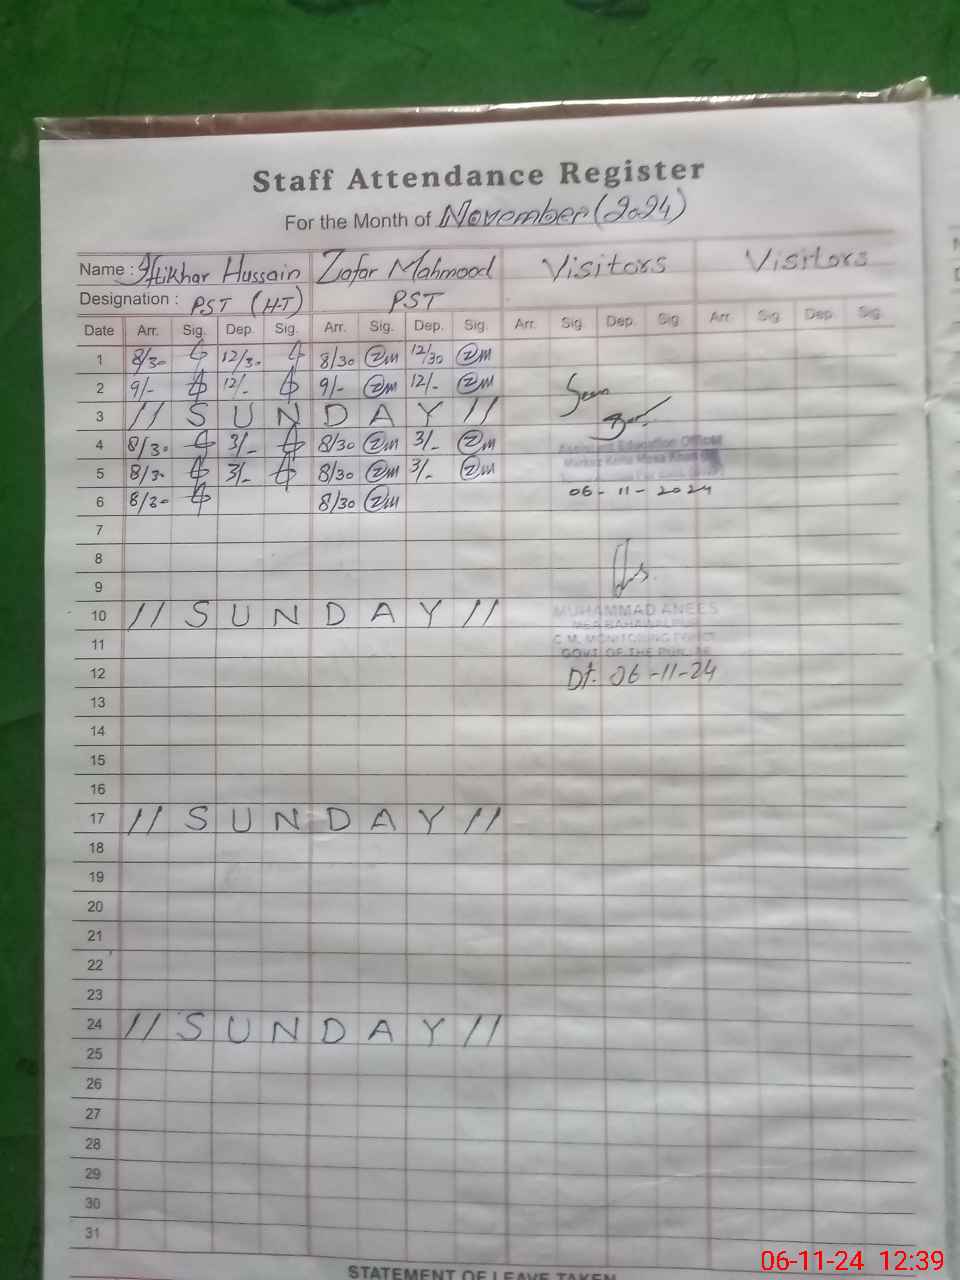 Staff Attendance Register
For the Month of November (2024)
Name : Iftikhar Hussain Zafar Mahmood Visitors Visitors
Designation : PST (HT) PST
Date Arr. Sig. Dep. Sig. Arr. Sig. Dep. Sig. Arr. Sig. Dep. Sig. Arr. Sig. Dep. Sig.
1 8/30 12/30 8/30 ZM 12/30 ZM
2 9/- 12/- 9/- ZM 12/- ZM
Seen
3 // S U N D A Y //
4 8/30 3/- 8/30 ZM 3/- ZM
Assistant Education Officer
5 8/30 3/- 8/30 ZM 3/- ZM
06-11-2024
6 8/30 8/30 ZM
7
8
9
10 // S U N D A Y //
MUHAMMAD ANEES
MEA BAHAWALPUR
11
C.M. MONITORING FORCE
GOVT OF THE PUNJAB
12 Dt. 06-11-24
13
14
15
16
17 // S U N D A Y //
18
19
20
21
22
23
24 // S U N D A Y //
25
26
27
28
29
30
31
STATEMENT OF LEAVE TAKEN
06-11-24 12:39